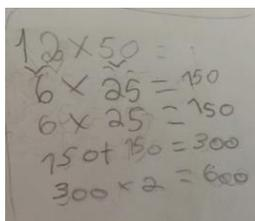 12 × 50 =
6 × 25 = 150
6 × 25 = 150
150 + 150 = 300
300 × 2 = 600